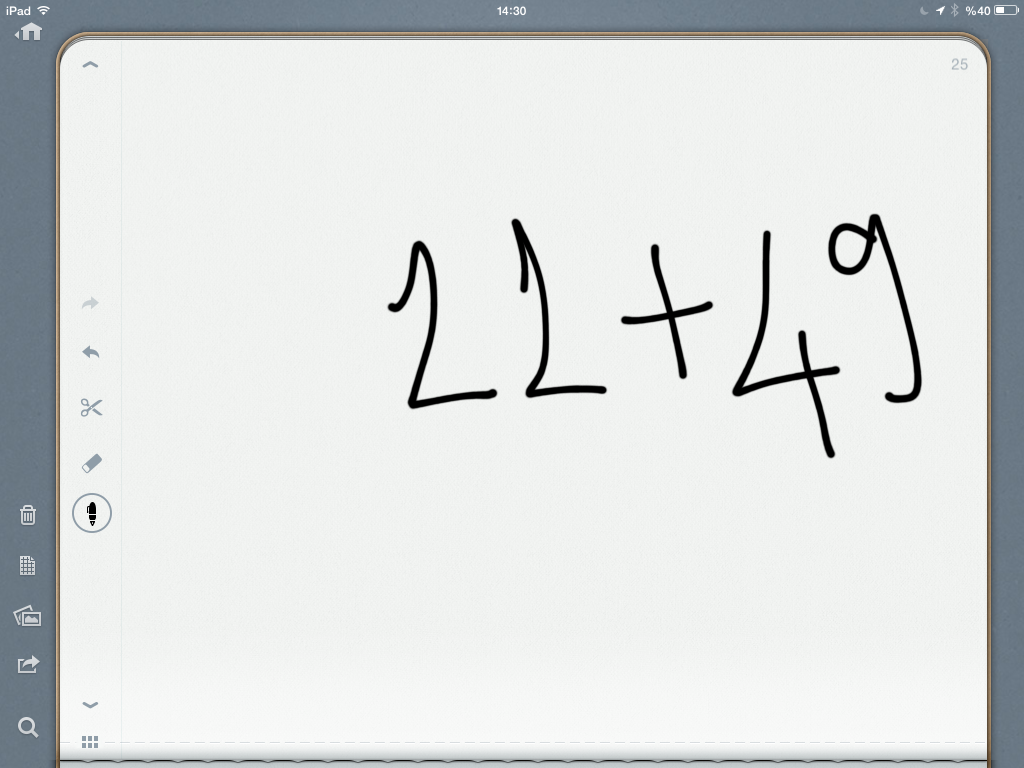 iPad 14:30 %40
25
22+49